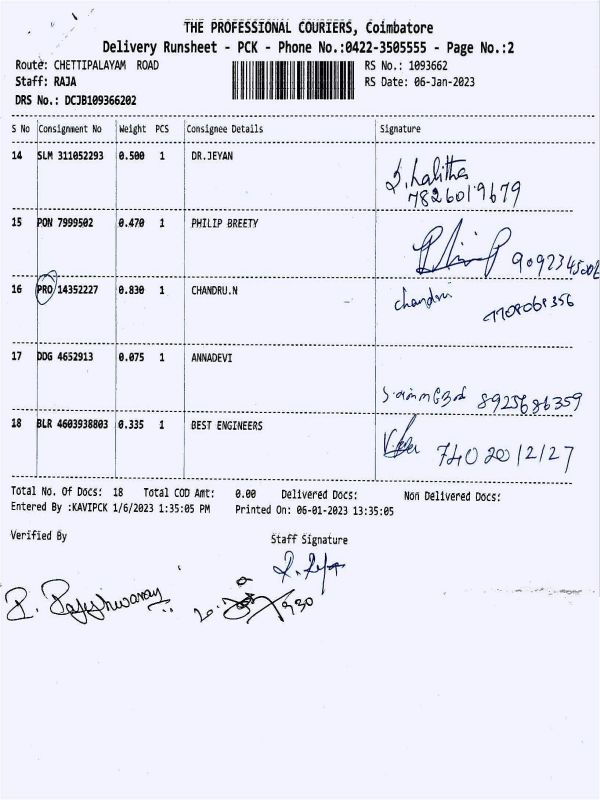 THE PROFESSIONAL COURIERS, Coimbatore
Delivery Runsheet - PCK - Phone No.:0422-3505555 - Page No.:2
Route: CHETTIPALAYAM ROAD RS No.: 1093662
Staff: RAJA RS Date: 06-Jan-2023
DRS No.: DCJB109366202
S No Consignment No Weight PCS Consignee Details Signature
14 SLM 311052293 0.500 1 DR.JEYAN
S. Lalitha
7826019679
15 PON 7999502 0.470 1 PHILIP BREETY
9092345006
16 PRO 14352227 0.830 1 CHANDRU.N chandru
7708068356
17 DDG 4652913 0.075 1 ANNADEVI
8925686359
18 BLR 4603938803 0.335 1 BEST ENGINEERS
7402012127
Total No. Of Docs: 18 Total COD Amt: 0.00 Delivered Docs: Non Delivered Docs:
Entered By :KAVIPCK 1/6/2023 1:35:05 PM Printed On: 06-01-2023 13:35:05
Verified By Staff Signature
R. Rajeshwaran